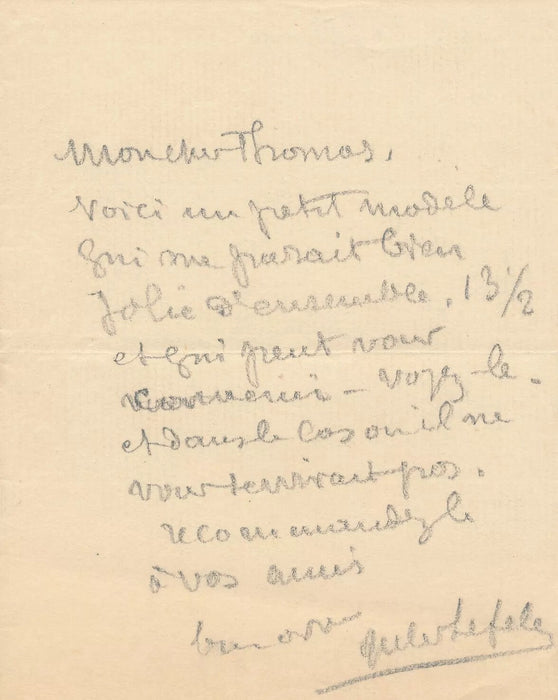 Mon cher Thomas,
Voici un petit modèle
qui me parait bien
jolie d'ensemble, 13 1/2
et qui peut vous
convenir - voyez-le -
et dans le cas où il ne
vous servirait pas.
recommandez le
à vos amis
bien à vous
Jules Lefebvre